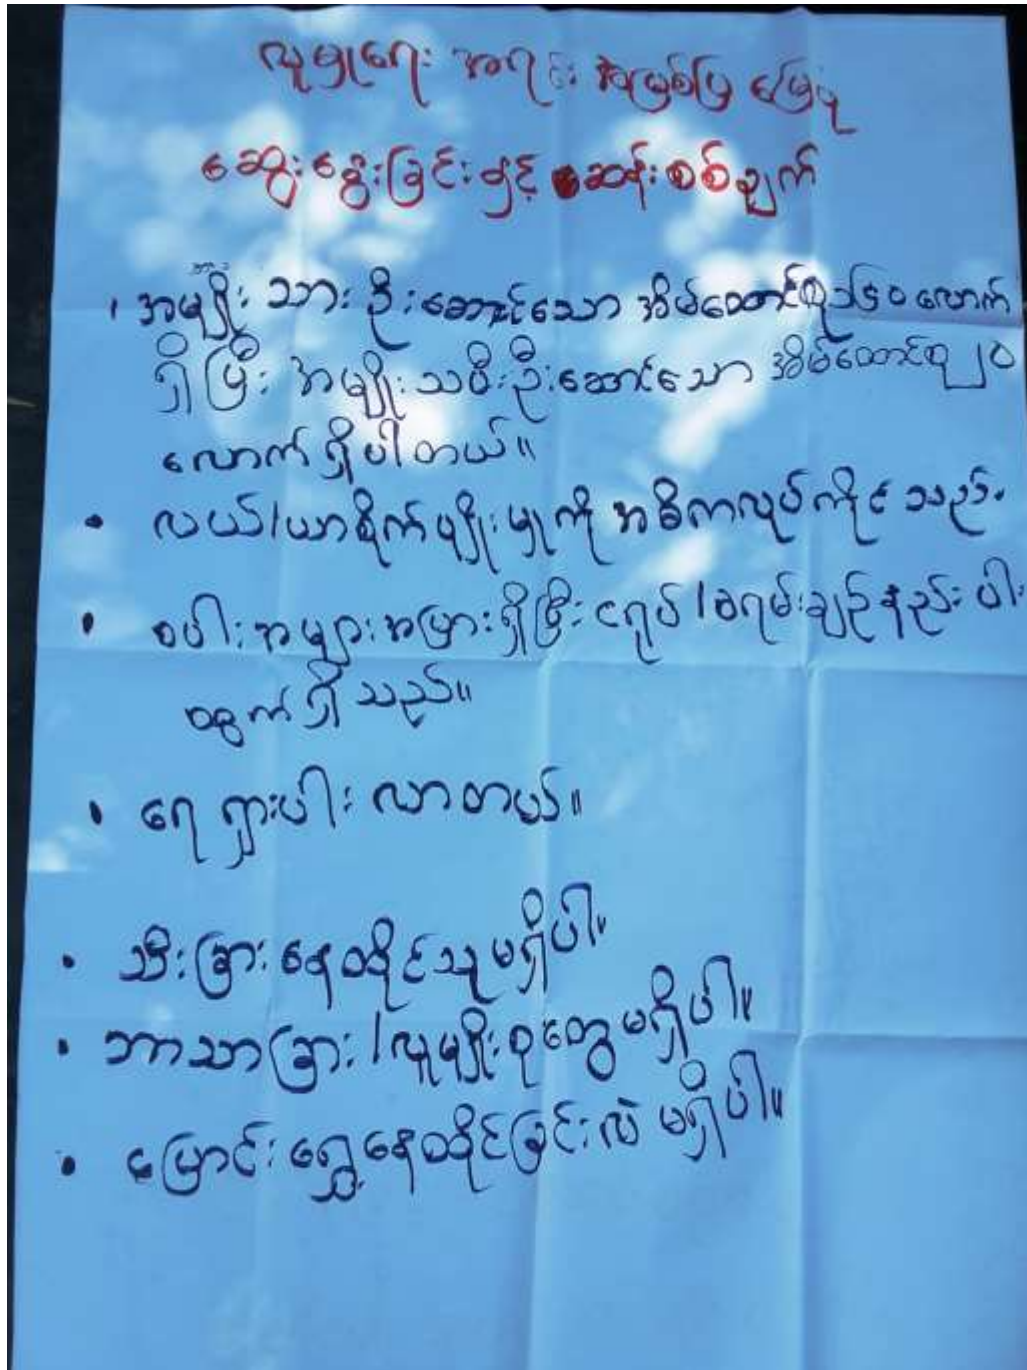 လူမှုရေး အရင်းအမြစ်ပြ မြေပုံ
ဆွေးနွေးခြင်းနှင့် ဆန်းစစ်ချက်
အမျိုးသားဦးဆောင်သော အိမ်ထောင်စု ၁၆၀ လောက်
ရှိပြီး အမျိုးသမီးဦးဆောင်သော အိမ်ထောင်စု ၂၀
လောက်ရှိပါတယ်။
• လယ်/ယာစိုက်ပျိုးမှုကို အဓိကလုပ်ကိုင်သည်။
• စပါးအများအပြားရှိပြီး ငရုပ်/ခရမ်းချဉ်နည်းပါး
ထွက်ရှိသည်။
• ရေရှားပါးလာတယ်။
• သီးခြားနေထိုင်သူမရှိပါ။
• ဘာသာခြား/လူမျိုးစုတွေမရှိပါ။
• ပြောင်းရွှေ့နေထိုင်ခြင်းလဲ မရှိပါ။